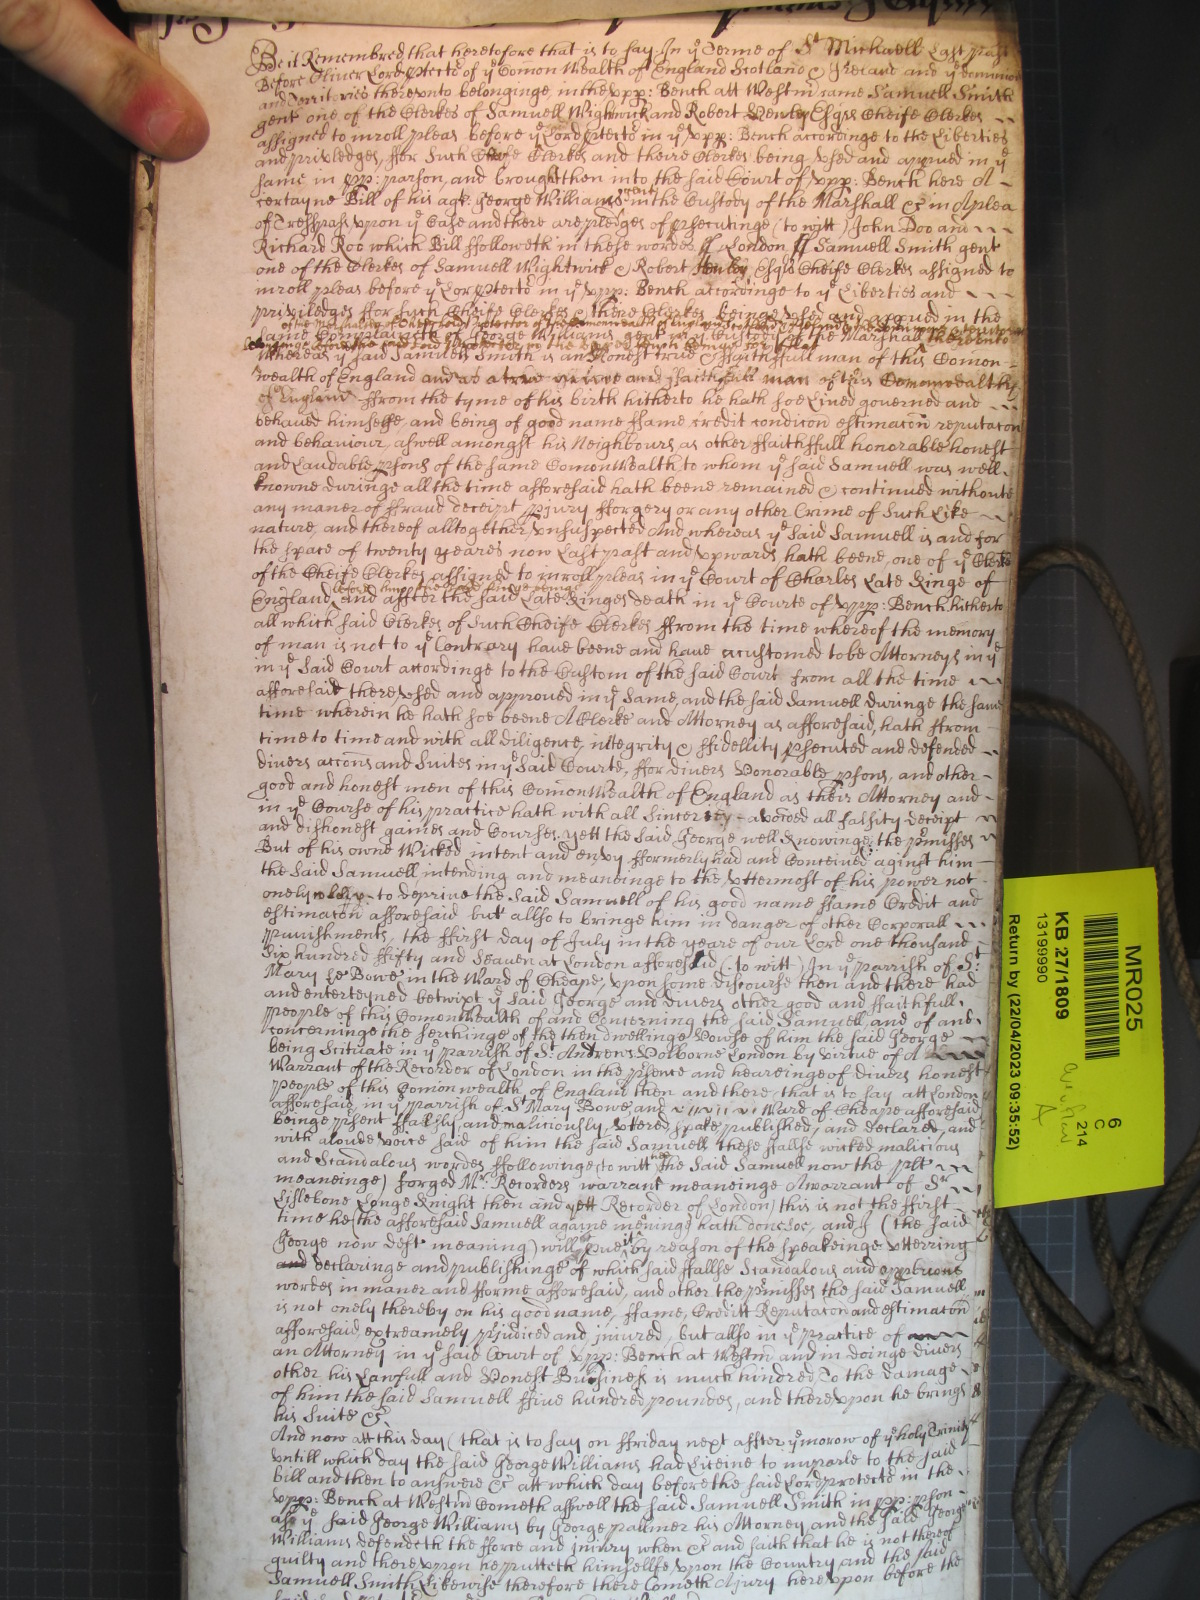 Be it Remembred that heretofore that is to say In ye Terme of St Michaell Last past
Before Oliver Lord Ptector of ye Comon Wealth of England Scotland & Ireland and ye dominions
and Territories thereunto belonginge in the upp: Bench att Westm came Samuell Smith
gent one of the Clerkes of Samuell Wightwick and Robert Henley Esqrs Cheife Clerkes
assigned to inroll pleas before ye Lord Ptector in ye upp: Bench accordinge to the Liberties
and priviledges ffor Such Cheife Clerkes and theire Clerkes being used and approued in ye
same in pp: person, and brought then into the said Court of upp: Bench here A
certayne Bill of his agt George Williams gent in the Custody of the Marshall &c in A plea
of Tresspass upon ye Case and there are pledges of psecutinge (to witt) John Doo and
Richard Roo which Bill ffolloweth in these wordes ss London ss Samuell Smith gent
one of the Clerkes of Samuell Wightwick & Robert Henley Esqrs Cheife Clerkes assigned to
inroll pleas before ye Lor Ptector in ye upp: Bench accordinge to ye Liberties and
priviledges ffor Such Cheife Clerkes & there Clerkes beinge used and approued in the
same Complaineth of George Williams gent in the Custody of the Marshall
Whereas ye said Samuell Smith is an Honest true & ffaithfull man of this Comon
wealth of England and as a true and ffaithfull man of this Comonwealth
of England ffrom the tyme of his birth hitherto he hath soe Lived governed and
behaved himselfe, and being of good name ffame credit condicon estimacon reputacon
and behaviour, aswell amongst his Neighbours as other ffaithffull honorable honest
and Laudable psons of the same Comonwealth to whom ye said Samuell was well
knowne duringe all the time afforesaid hath beene remained & continued without
any maner of ffraud deceipt pjury fforgery or any other Crime of Such Like
nature, and thereof alltogether unsuspected And whereas ye Said Samuell is and for
the space of twenty yeares now Last past and upwards hath beene, one of ye Clerkes
of the Cheife Clerkes assigned to inroll pleas in ye Court of Charles Late Kinge of
England, and affter the said Late Kinges death in ye Courte of upp: Bench hitherto
all which said Clerkes of Such Cheife Clerkes ffrom the time whereof the memory
of man is not to ye Contrary have beene and have accustomed to be Attorneys in ye
in ye Said Court accordinge to the Custom of the said Court from all the time
afforesaid there used and approued in ye Same, and the said Samuell duringe the same
time wherein he hath soe beene A Clerke and Attorney as afforesaid, hath ffrom
time to time and with all diligence, integrity & ffidellity psecuted and defended
divers accions and Suites in ye Said Courte, ffor divers Honorable psons, and other
good and honest men of this Comonwealth of England as their Attorney and
in ye Course of his practice hath with all Sincerity avoiced all falsity deceipt
and dishonest gaines and Courses yett the Said George well Knowinge the pmisses
But of his owne Wicked intent and envy fformerly had and Conceived against him
the Said Samuell intending and meaneinge to the uttermost of his power not
onely to deprive the Said Samuell of his good name ffame Credit and
estimacon afforesaid but allso to bringe him in danger of other Corporall
punishments, the ffirst day of July in the yeare of our Lord one thousand
Six hundred ffifty and Seaven at London afforesaid (to witt) In ye parrish of St
Mary le Bowe in the Ward of Cheape, upon some discourse then and there had
and enterteyned betwixt ye Said George and divers other good and ffaithfull
people of this Comonwealth of and Concerning the said Samuell and of and
concerninge the serchinge of the then dwellinge Howse of him the said George
being Scituate in ye parrish of St Andrews Holborne London by virtue of A
Warrant of the Recorder of London in the psence and heareinge of divers honest
people of this Comonwealth of England then and there, that is to say att London
afforesaid in ye parrish of St Mary Bowe, and Ward of Cheape afforesaid
beinge psent ffalsly, and maliciously, uttered, spake, published, and declared, and
with a loude voice said of him the said Samuell these ffallse wicked malicious
and Scandalous wordes ffollowinge (to witt) he (the Said Samuell now the plt
meaneinge) forged Mr Recorders warrant meaneinge A warrant of Sr
Lislebone Longe Knight then and yett Recorder of London) this is not the ffirst
time he (the afforesaid Samuell againe meninge) hath donc soe, and I (the said
George now deft meaning) will prove it by reason of the speakeinge uttering
and declaringe and publishinge of which said ffallse Scandalous and opprbrious
wordes in maner and fforme afforesaid, and other the pmisses the said Samuell
is not onely thereby on his good name, ffame, Creditt Reputacon and estimacon
afforesaid, extreamely pjudiced and injured, but allso in ye practice of
an Attorney in ye said Court of upp: Bench at Westm and in doinge divers
other his Lawfull and Honest Buisines is much hindred To the damage
of him the said Samuell ffiue hundred poundes, and thereupon he brings
his Suite &c
And now att this day (that is to say on ffriday next affter ye morow of ye holy Trinity
untill which day the said George Williams had Liceine to imparle to the said
bill and then to answere &c att which day before the said Lord protector in the
upp: Bench at Westm Cometh aswell the said Samuell Smith in pp: pson
as ye said George Williams by George pallmer his Attorney and the said George
Williams defendeth the fforce and injury when &c and saith that he is not thereof
guilty and thereupon he putteth himselfe upon the Country and the said
Samuell Smith Likewise therefore there Cometh A jury hereupon before the
MR025
6
C
214
KB 27/1809
13199990
Return by (22/04/2023 09:35:52)